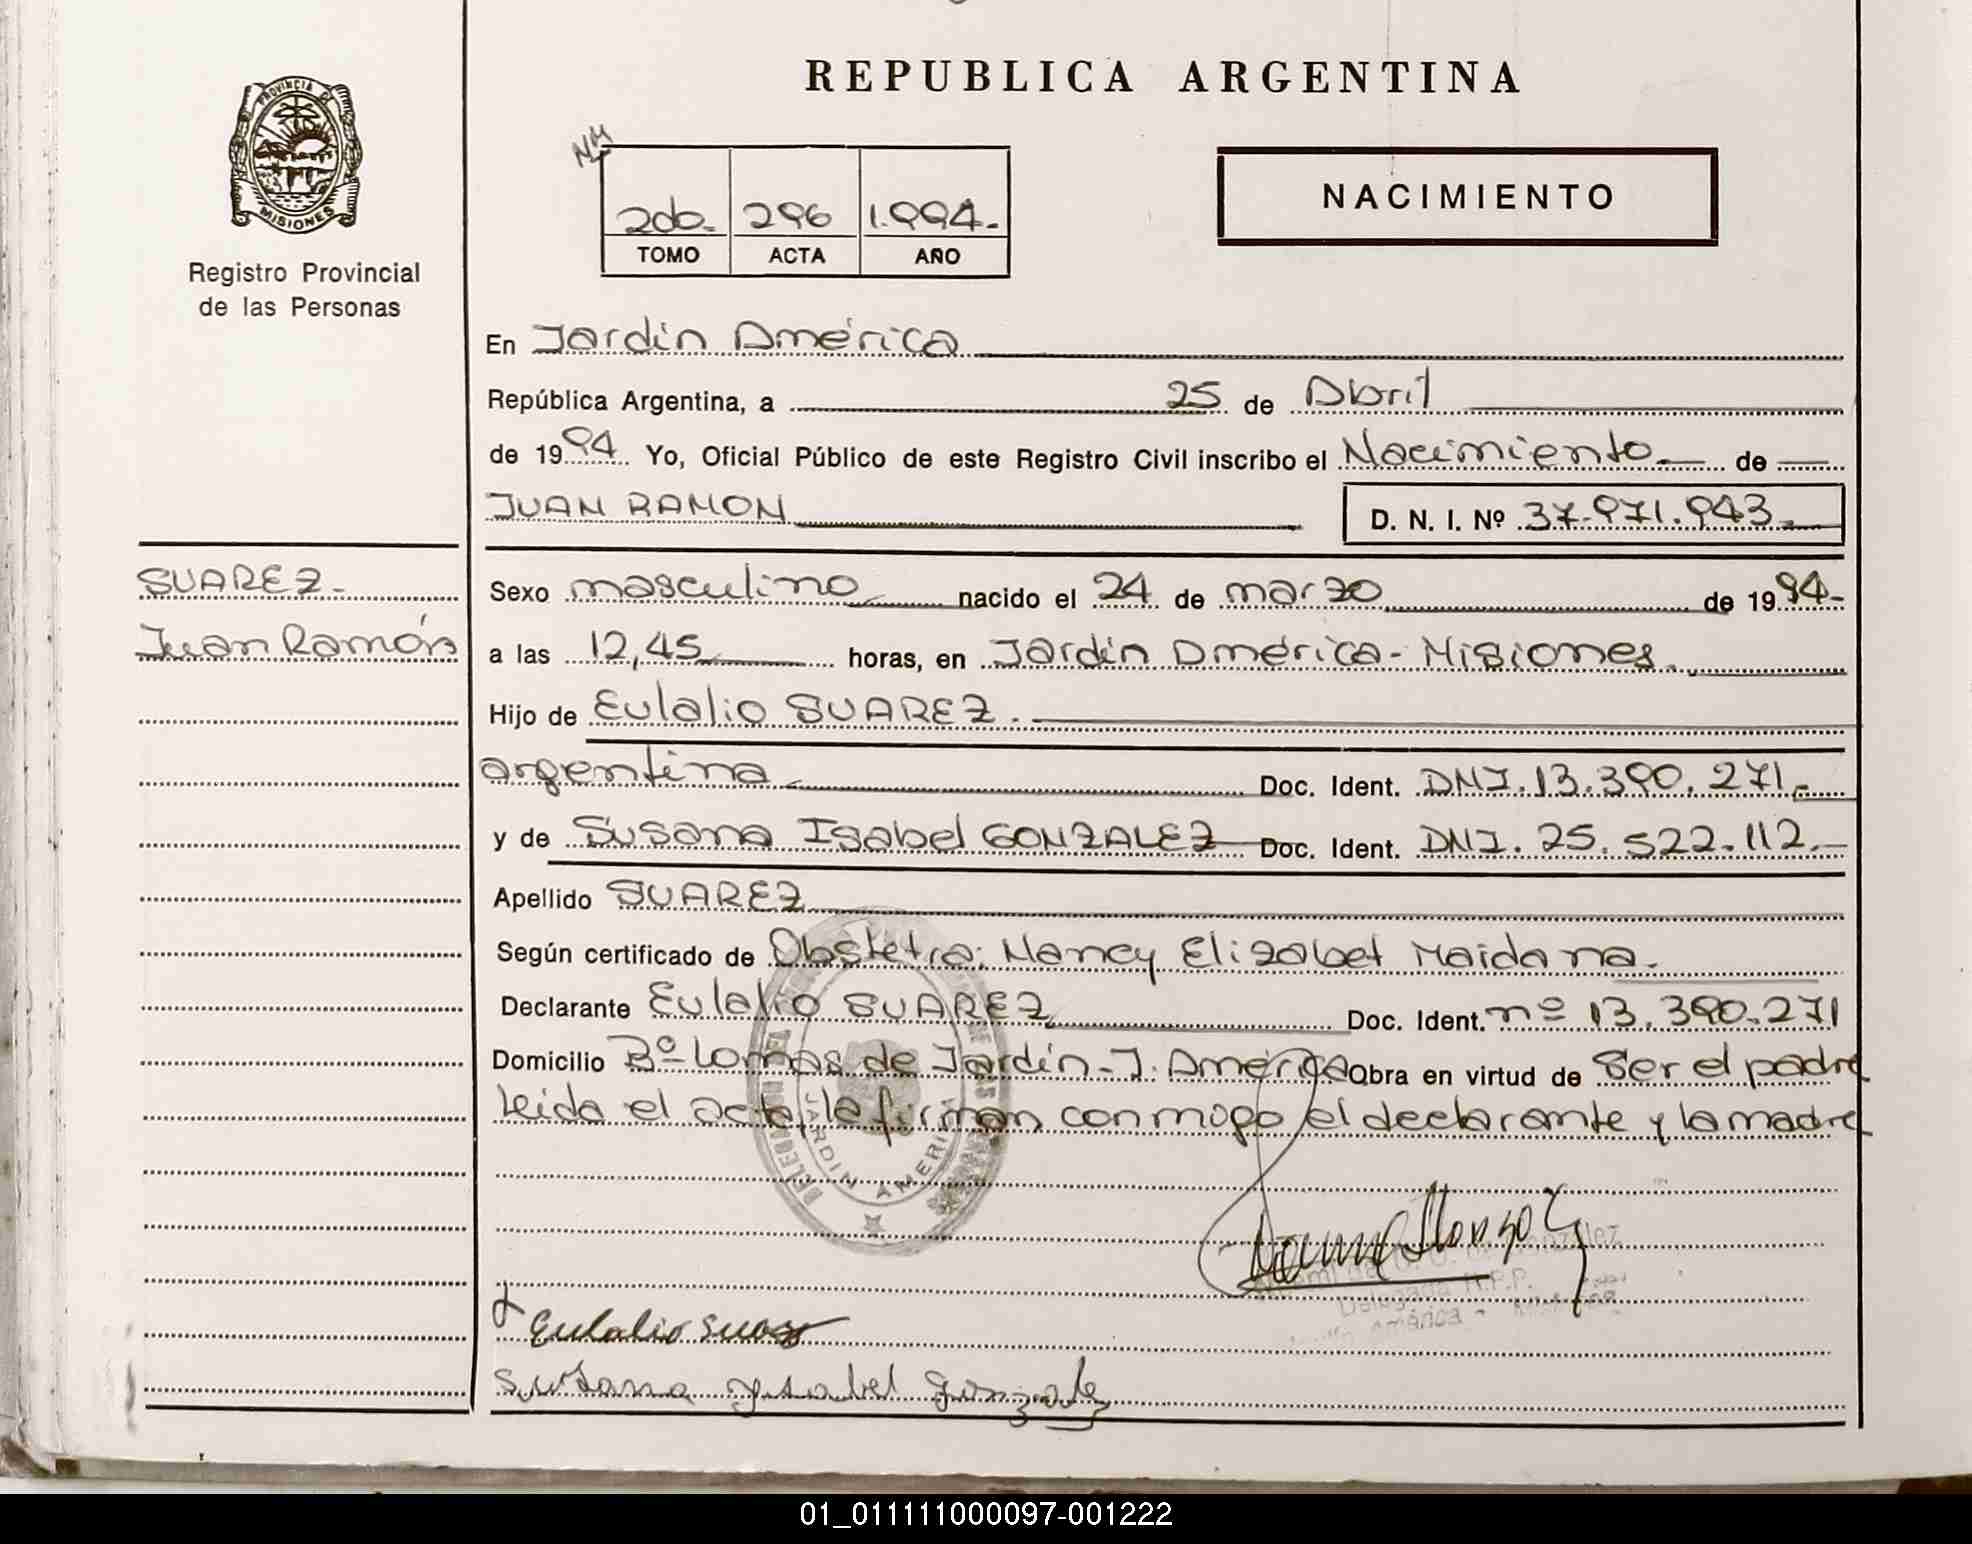 REPUBLICA ARGENTINA
PROVINCIA DE
MISIONES
Registro Provincial
de las Personas
2do. 296 1.994.-
TOMO ACTA AÑO
NACIMIENTO
En Jardín América
República Argentina, a 25 de Abril
de 1994 Yo, Oficial Público de este Registro Civil inscribo el Nacimiento de
JUAN RAMON D. N. I. Nº 37.971.943.-
SUAREZ.-
Juan Ramón
Sexo masculino nacido el 24 de marzo de 1994.-
a las 12,45 horas, en Jardín América - Misiones.
Hijo de Eulalio SUAREZ.
argentina Doc. Ident. DNI. 13.390.271.-
y de Susana Isabel GONZALEZ Doc. Ident. DNI. 25.522.112.-
Apellido SUAREZ
Según certificado de Obstetra: Nancy Elizabet Maidana.
Declarante Eulalio SUAREZ Doc. Ident. nº 13.390.271
Domicilio Bº Lomas de Jardín - J. América Obra en virtud de Ser el padre
leida el acta, la firman conmogo el declarante y la madre
JARDIN AMERICA
Delegada R.P.P.
Eulalio Suarez
Susana Ysabel Gonzalez
01_011111000097-001222